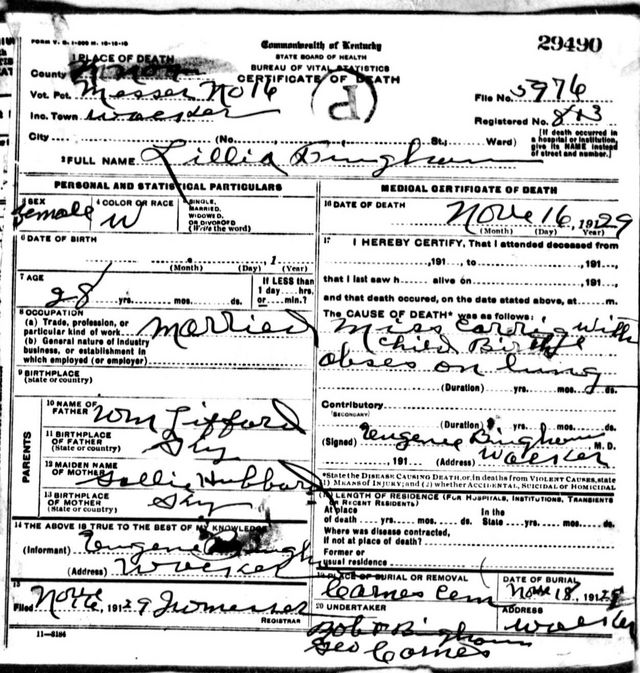 FORM V. S. 1-
29490
Commonwealth of Kentucky
STATE BOARD OF HEALTH
BUREAU OF VITAL STATISTICS
CERTIFICATE OF DEATH
1 PLACE OF DEATH
County Knox
Vot. Pct. Messer No 16
Inc. Town Walker
City (No. St.; Ward)
File No. 5976
Registered No. 813
[If death occurred in a hospital or institution, give its NAME instead of street and number.]
2 FULL NAME Lillia Bingham
PERSONAL AND STATISTICAL PARTICULARS
3 SEX
Female
4 COLOR OR RACE
W
5 SINGLE, MARRIED, WIDOWED, OR DIVORCED (Write the word)
6 DATE OF BIRTH
, 1
(Month) (Day) (Year)
7 AGE
28 yrs. mos. ds.
If LESS than 1 day hrs. or min.?
8 OCCUPATION
(a) Trade, profession, or particular kind of work married
(b) General nature of industry business, or establishment in which employed (or employer)
9 BIRTHPLACE
(State or country)
PARENTS
10 NAME OF FATHER Wm Gifford
11 BIRTHPLACE OF FATHER
(State or country) Ky
12 MAIDEN NAME OF MOTHER Sallie Hubbard
13 BIRTHPLACE OF MOTHER
(State or country) Ky
14 THE ABOVE IS TRUE TO THE BEST OF MY KNOWLEDGE
(Informant) Eugene Bingham
(Address) Walker
15
Filed Nov 16, 1929 J W Messer
REGISTRAR
11-3184
MEDICAL CERTIFICATE OF DEATH
16 DATE OF DEATH
Nov 16, 1929
(Month) (Day) (Year)
17 I HEREBY CERTIFY, That I attended deceased from
, 191 , to , 191 ,
that I last saw h alive on , 191 ,
and that death occurred, on the date stated above, at m.
The CAUSE OF DEATH* was as follows:
Miss Carrig with
Child Birth
abses on lung
(Duration) yrs. mos. ds.
Contributory
(SECONDARY)
(Duration) yrs. mos. ds.
(Signed) Eugene Bingham M. D.
, 191 (Address) Walker
*State the DISEASE CAUSING DEATH, or, in deaths from VIOLENT CAUSES, state
1) MEANS OF INJURY; and (2) whether ACCIDENTAL, SUICIDAL or HOMICIDAL
18 LENGTH OF RESIDENCE (FOR HOSPITALS, INSTITUTIONS, TRANSIENTS OR RECENT RESIDENTS)
At place of death yrs. mos. ds.
In the State yrs. mos. ds.
Where was disease contracted, If not at place of death?
Former or usual residence
19 PLACE OF BURIAL OR REMOVAL
Carnes Cem
DATE OF BURIAL
Nov 18, 1929
20 UNDERTAKER
Bob Bingham
Geo Carnes
ADDRESS
Walker